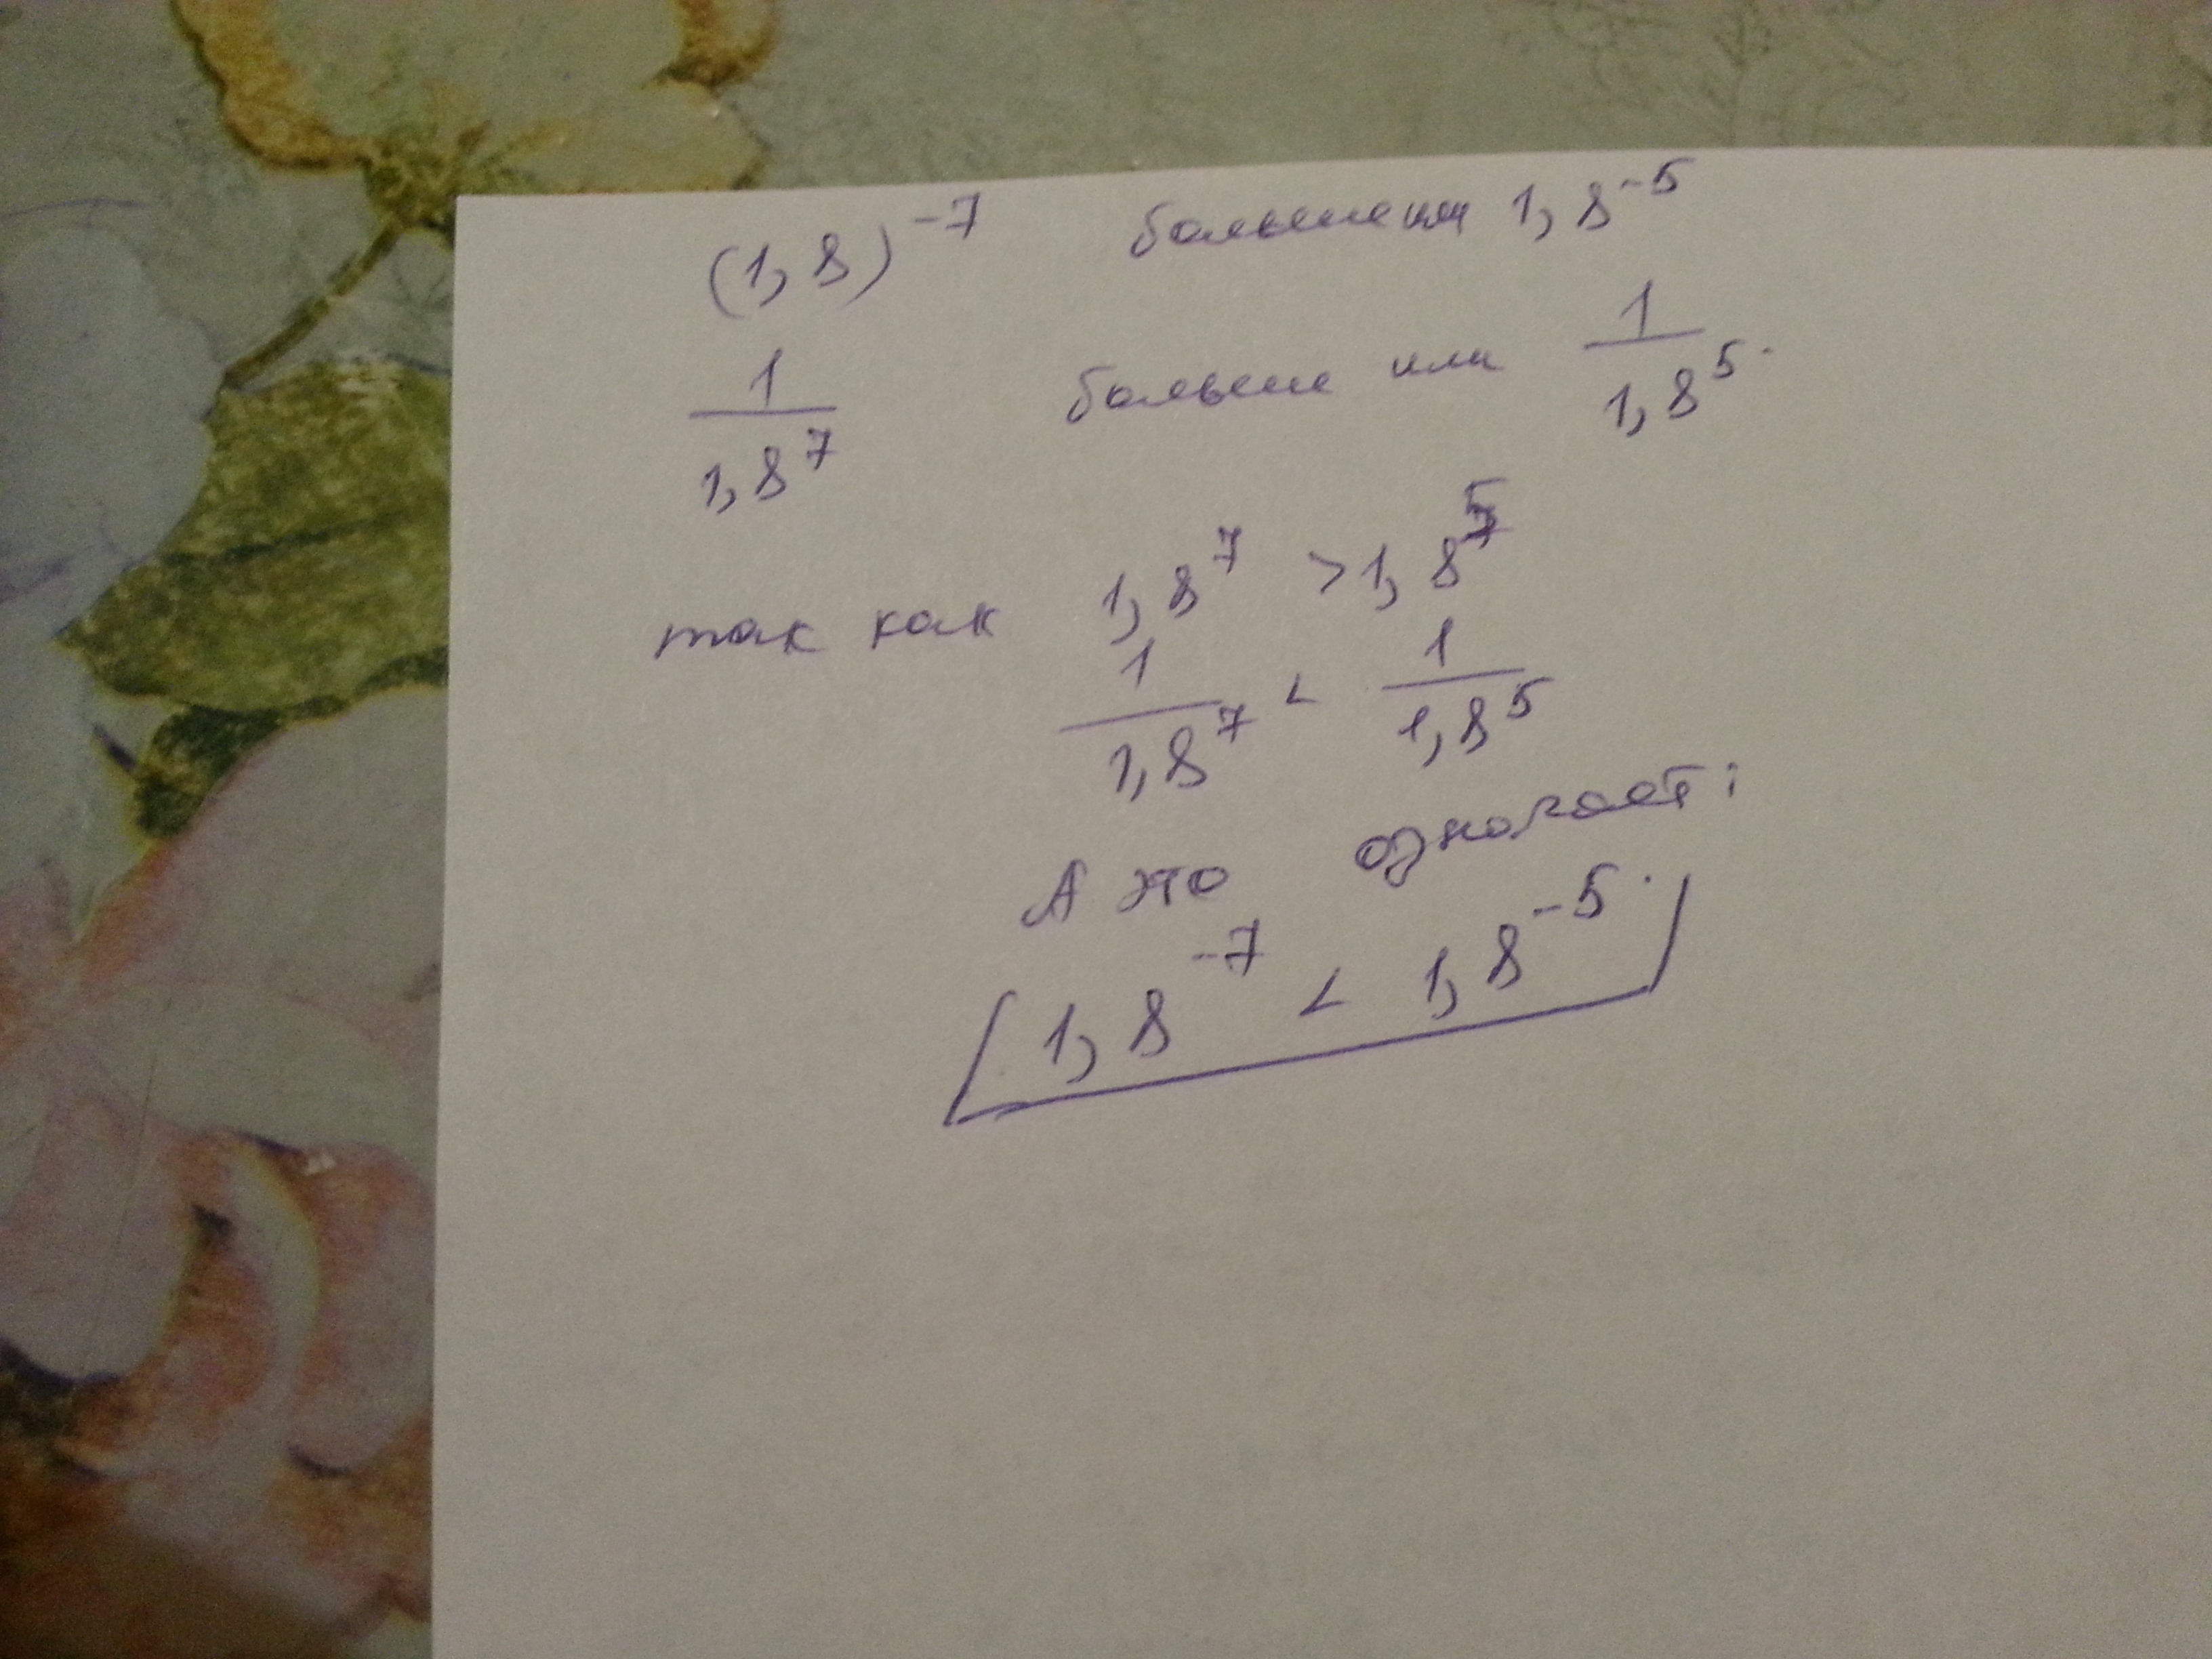 (1,8)^-7 больше или 1,8^-5
1/1,8^7 больше или 1/1,8^5.
так как 1,8^7 > 1,8^5
1/1,8^7 < 1/1,8^5
А это означает:
1,8^-7 < 1,8^-5.